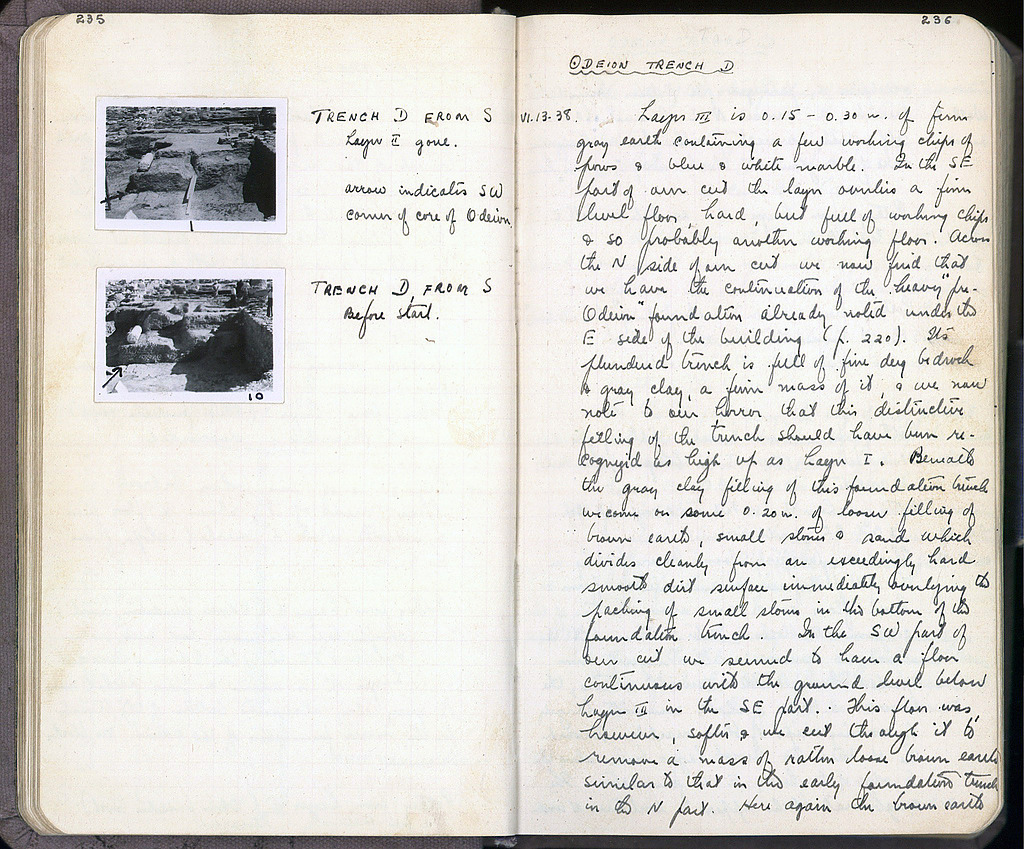 235
TRENCH D FROM S
Layer II gone.
arrow indicates SW
corner of core of Odeion.
TRENCH D, FROM S
Before start.
10
236
ODEION TRENCH D
VI.13.38. Layer III is 0.15 - 0.30 m. of firm
gray earth containing a few working chips of
poros & blue & white marble. In the SE
part of our cut the layer overlies a firm
level floor, hard, but full of working chips
& so probably another working floor. Across
the N side of our cut we now find that
we have the continuation of the "heavy pre-
Odeion" foundation already noted under the
E side of the building (p. 220). Its
plundered trench is full of fine dug bedrock
& gray clay, a firm mass of it, & we now
note to our horror that this distinctive
filling of the trench should have been re-
cognized as high up as Layer I. Beneath
the gray clay filling of this foundation trench
we come on some 0.20 m. of looser filling of
brown earth, small stones & sand which
divides cleanly from an exceedingly hard
smooth dirt surface immediately overlying the
packing of small stones in the bottom of the
foundation trench. In the SW part of
our cut we seemed to have a floor
continuous with the ground level below
Layer III in the SE part. This floor was,
however, softer & we cut through it to
remove a mass of rather loose brown earth
similar to that in the early foundation trench
in the N part. Here again the brown earth